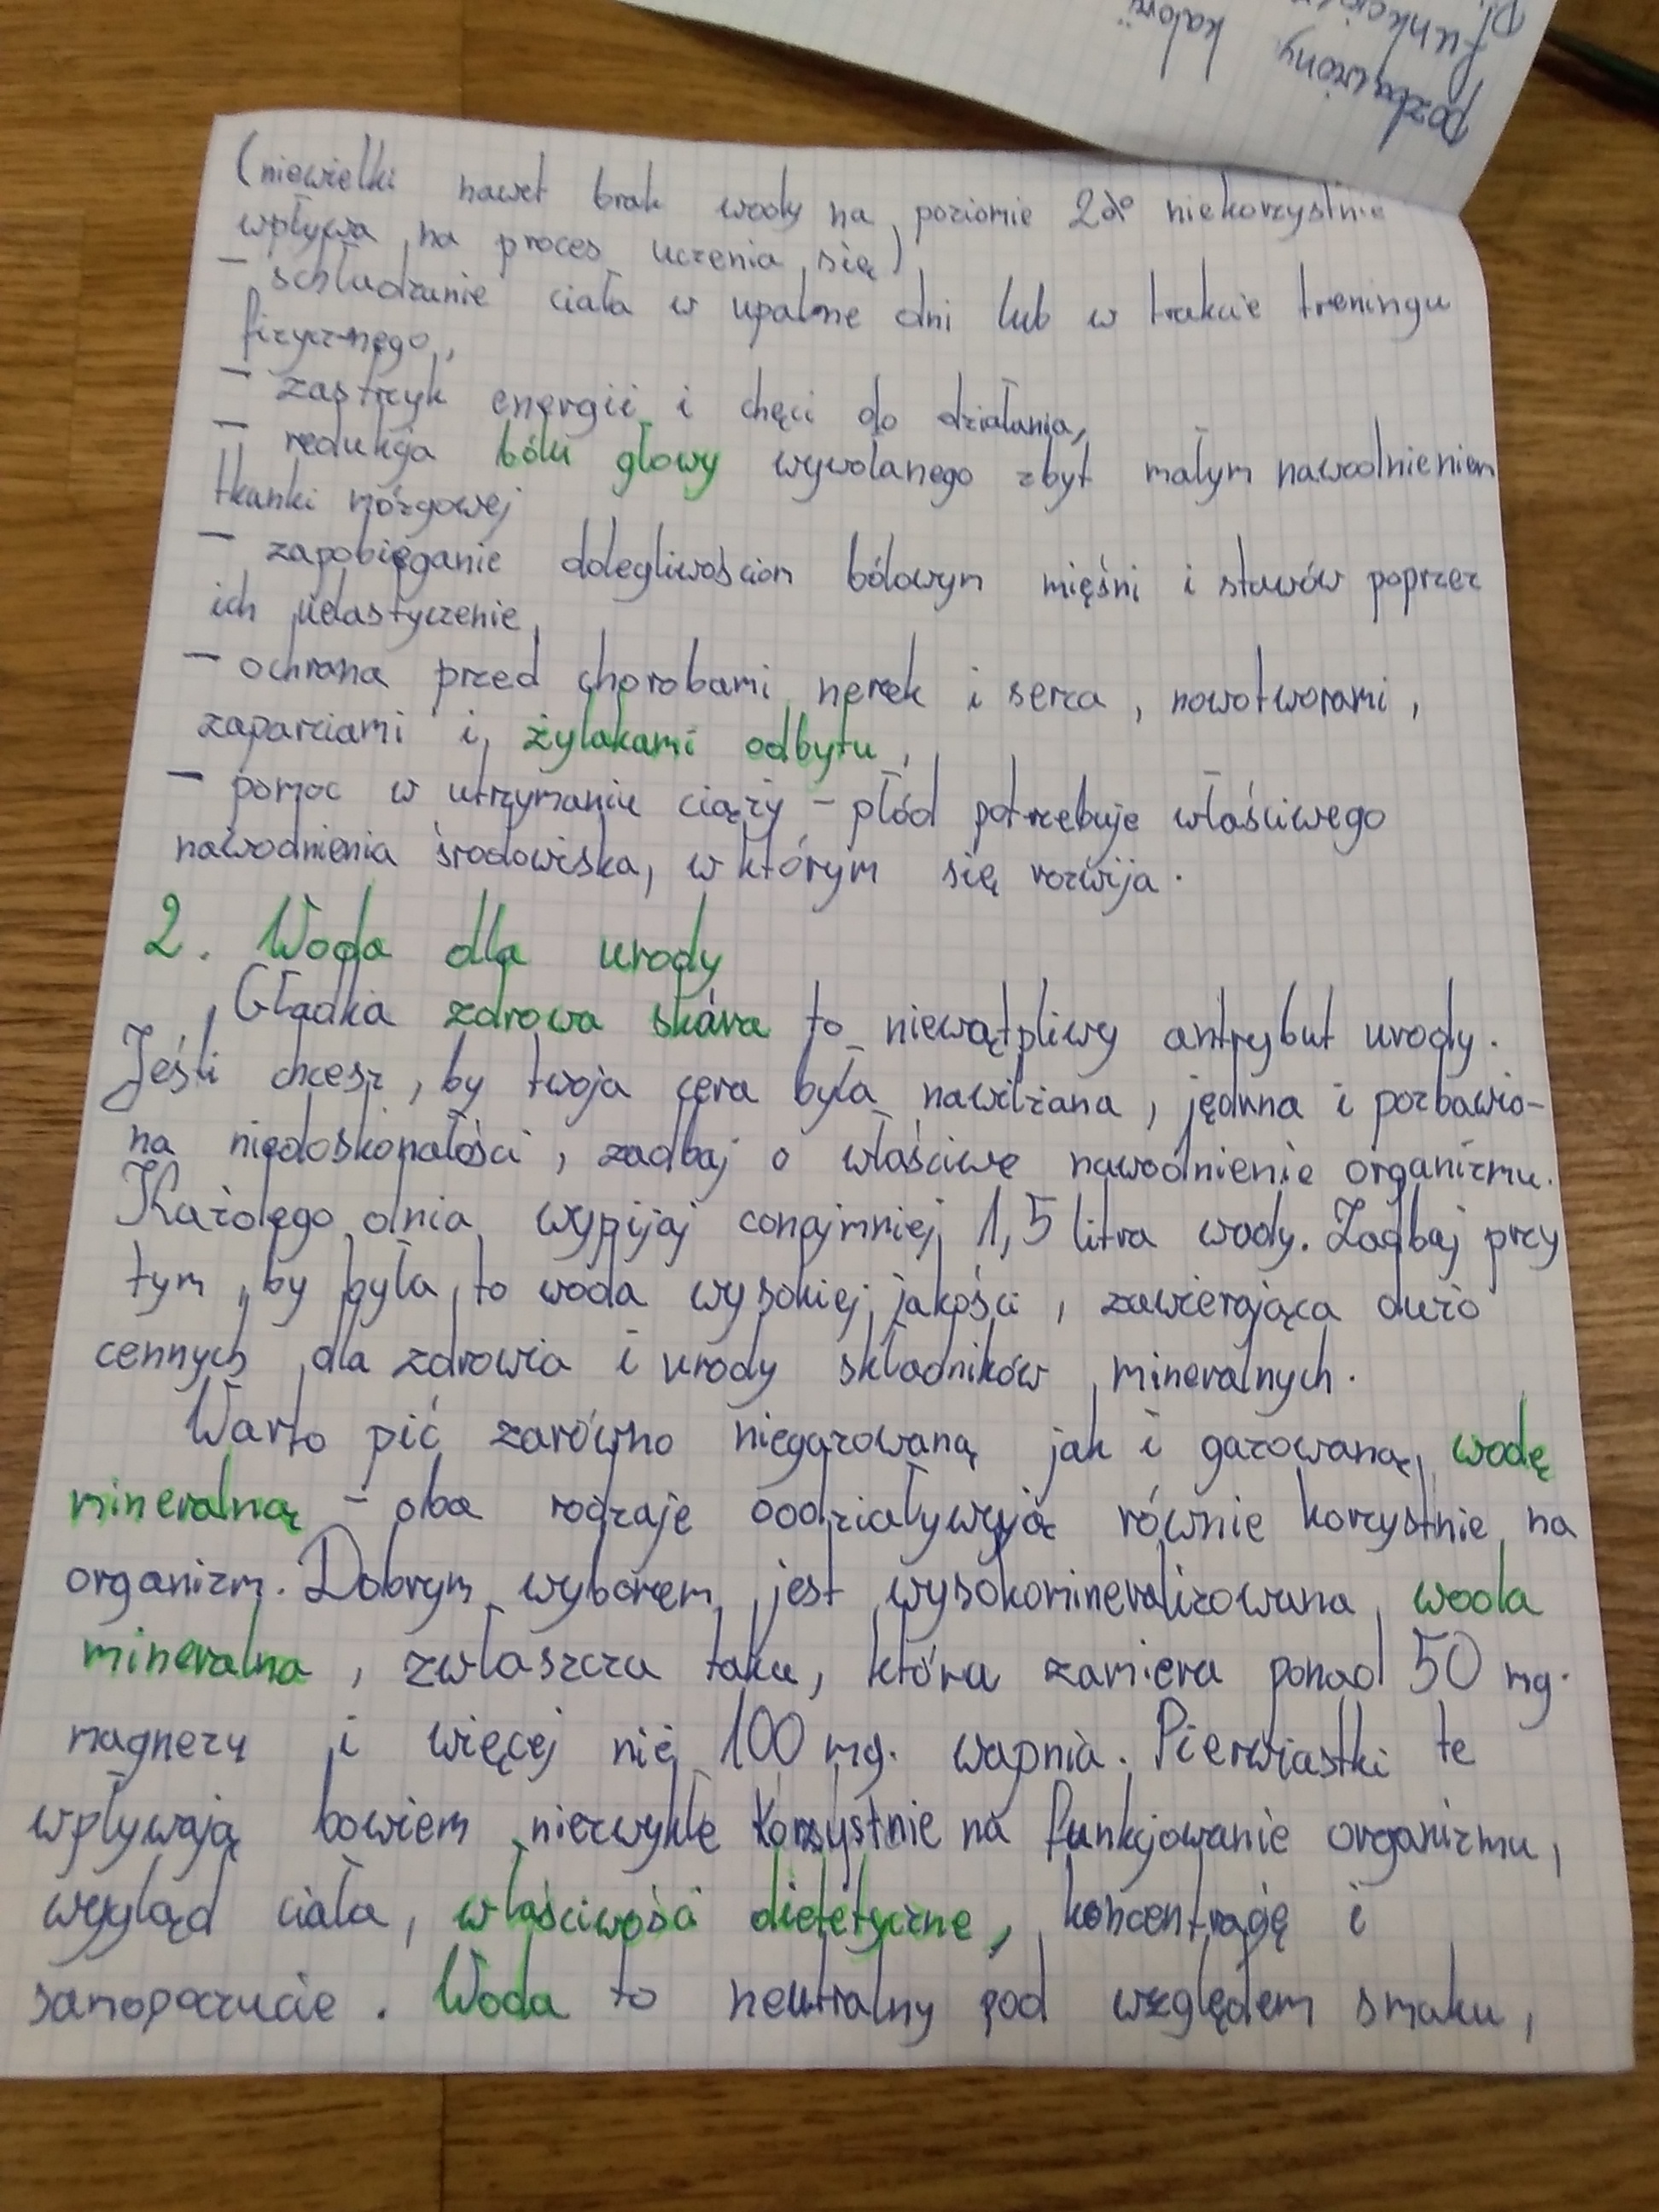 (niewielki nawet brak wody na poziomie 2% niekorzystnie
wpływa na proces uczenia się)
- schładzanie ciała w upalne dni lub w trakcie treningu
fizycznego,
- zastrzyk energii i chęci do działania,
- redukcja bólu głowy wywołanego zbyt małym nawodnieniem
tkanki mózgowej
- zapobieganie dolegliwościom bólowym mięśni i stawów poprzez
ich uelastycznienie,
- ochrona przed chorobami nerek i serca, nowotworami,
zaparciami i żylakami odbytu,
- pomoc w utrzymaniu ciąży - płód potrzebuje właściwego
nawodnienia środowiska, w którym się rozwija.
2. Woda dla urody
Gładka zdrowa skóra to niewątpliwy antrybut urody.
Jeśli chcesz, by twoja cera była nawilżana, jędrna i pozbawio-
na niedoskonałości, zadbaj o właściwe nawodnienie organizmu.
Każdego dnia wypijaj conajmniej 1,5 litra wody. Zadbaj przy
tym, by była to woda wysokiej jakości, zawierająca dużo
cennych dla zdrowia i urody składników mineralnych.
Warto pić zarówno niegazowaną jak i gazowaną wodę
mineralną - oba rodzaje oddziaływują równie korzystnie na
organizm. Dobrym wyborem jest wysokomineralizowana woda
mineralna, zwłaszcza taka, która zawiera ponad 50 mg.
magnezu i więcej niż 100 mg. wapnia. Pierwiastki te
wpływają bowiem niezwykle korzystnie na funkcjowanie organizmu,
wygląd ciała, właściwości dietetyczne, koncentrację i
samopoczucie. Woda to neutralny pod względem smaku,
pozbawiony kalorii